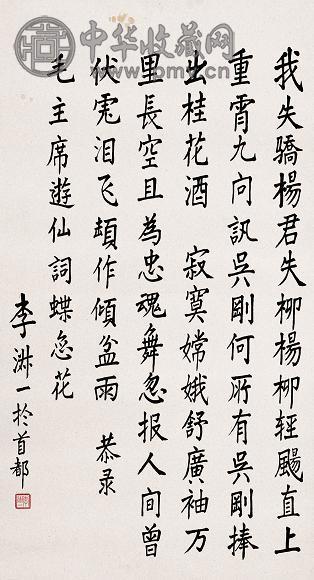 中华收藏网
我失驕楊君失柳楊柳輕颺直上
重霄九问訊吳剛何所有吳剛捧
出桂花酒 寂寞嫦娥舒廣袖万
里長空且為忠魂舞忽报人间曾
伏虎泪飞頓作傾盆雨 恭录
毛主席遊仙詞蝶恋花
李淑一於首都